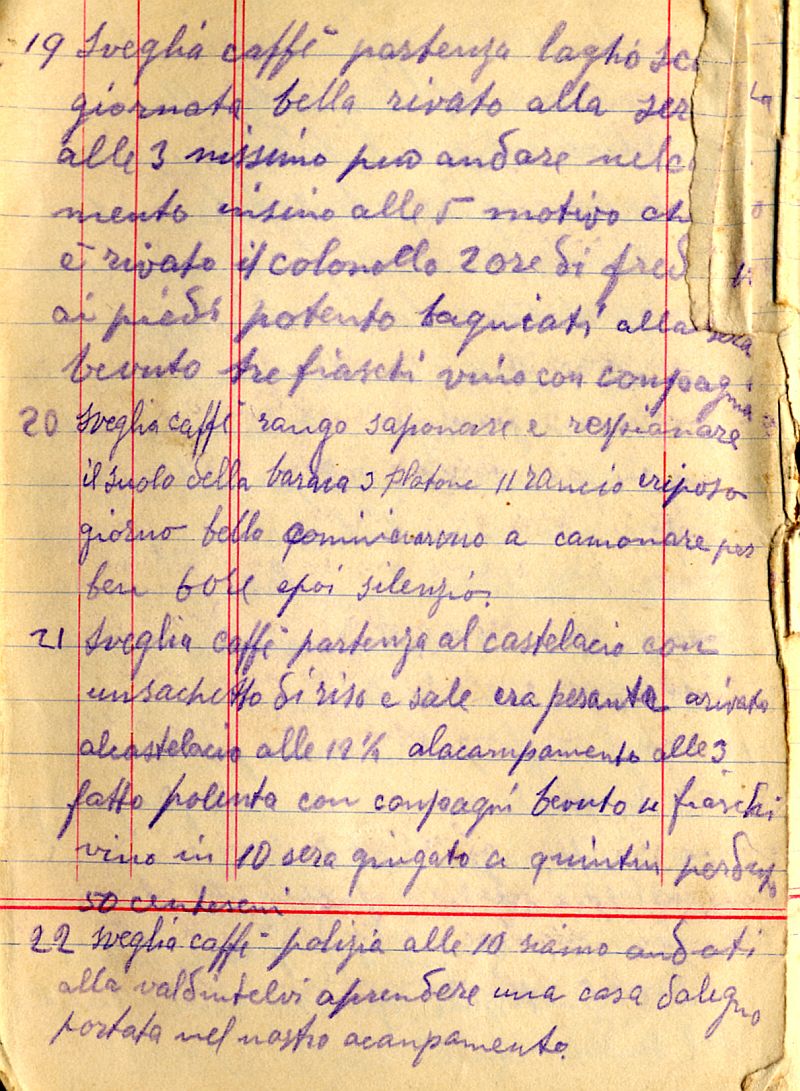 19 Sveglia caffè partenza lagho sc
giornata bella rivato alla ser
alle 3 nissuno può andare nelc
mento insino alle 5 motivo ch
è rivato il colonollo 2 ore di fred
ai piedi potento bagniati alla sera
bevuto tre fiaschi vino con conpagni
20 Sveglia caffè rango saponare e respianare
il suolo della baraca 3 Platone 11 rancio riposo
giorno bello cominciarono a camonare per
ben 6 ore epoi silenzio.
21 Sveglia caffè partenza al castelacio con
unsachetto di riso e sale era pesante arivato
alcastelacio alle 12½ alacampamento alle 3
fatto polenta con conpagni bevuto 4 fiaschi
vino in 10 sera giugato a quintin perduto
50 centesemi
22 Sveglia caffè polizia alle 10 siamo andati
alla valdintelvi aprendere una casa dalegno
portata nel nostro acanpamento.